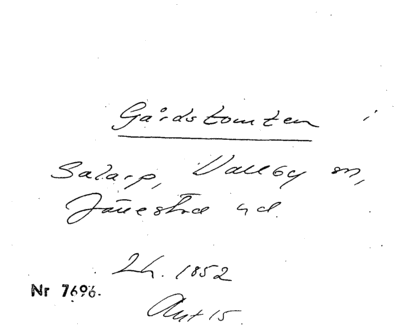 Gårdstomten i
Salarp, Vallby sn,
Järrestad hd.
Lh. 1852
Nr 7696.
Ant 15